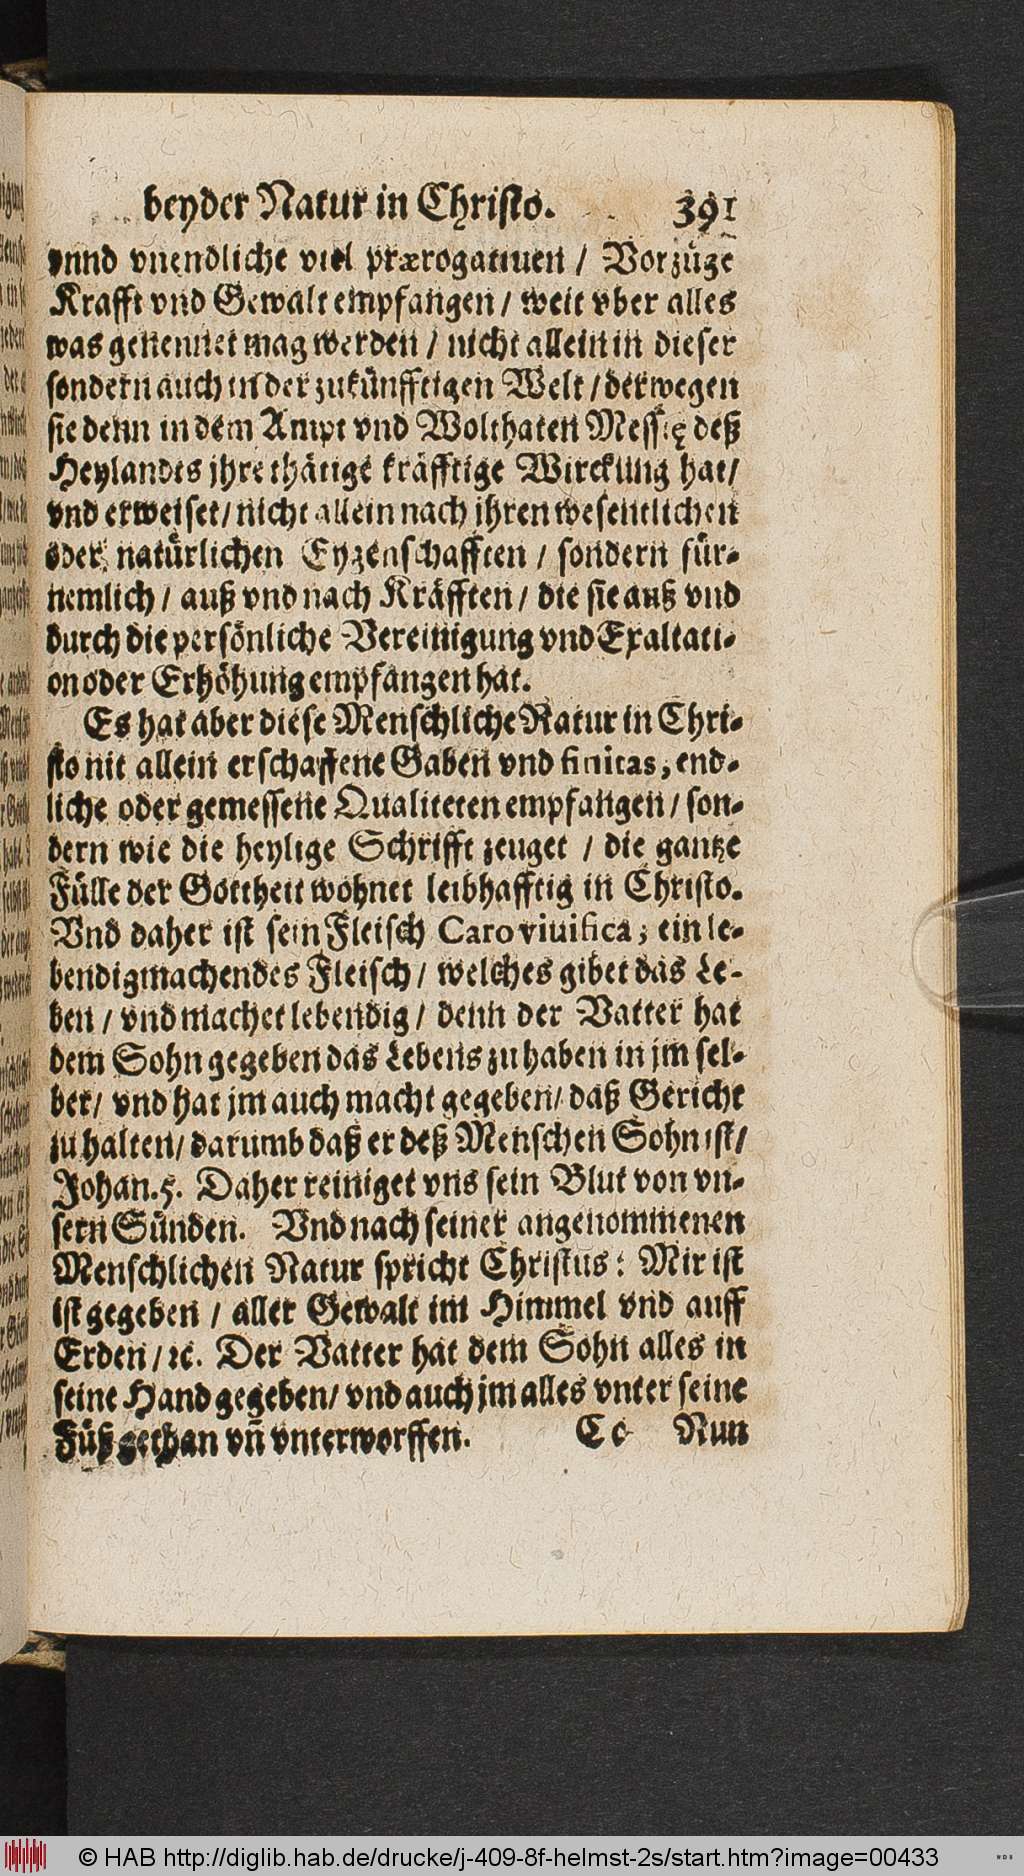 beyder Natur in Christo. 391
vnnd vnendliche viel prærogatiuen / Vorzüge
Krafft vnd Gewalt empfangen / weit vber alles
was genennet mag werden / nicht allein in dieser
sondern auch in der zukünfftigen Welt / derwegen
sie denn in dem Ampt vnd Wolthaten Messię deß
Heylandes jhre thätige kräfftige Wirckung hat /
vnd erweiset / nicht allein nach jhren wesentlichen
oder natürlichen Eygenschafften / sondern für-
nemlich / auß vnd nach Kräfften / die sie auß vnd
durch die persönliche Vereinigung vnd Exaltati-
on oder Erhöhung empfangen hat.
Es hat aber diese Menschliche Natur in Chri-
sto nit allein erschaffene Gaben vnd finitas, end-
liche oder gemessene Qualiteten empfangen / son-
dern wie die heylige Schrifft zeuget / die gantze
Fülle der Gottheit wohnet leibhafftig in Christo.
Vnd daher ist sein Fleisch Caro viuifica, ein le-
bendigmachendes Fleisch / welches gibet das Le-
ben / vnd machet lebendig / denn der Vatter hat
dem Sohn gegeben das Lebens zu haben in jm sel-
ber / vnd hat jm auch macht gegeben / daß Gericht
zu halten / darumb daß er deß Menschen Sohn ist /
Johan. 5. Daher reiniget vns sein Blut von vn-
sern Sünden. Vnd nach seiner angenommenen
Menschlichen Natur spricht Christus: Mir ist
ist gegeben / aller Gewalt im Himmel vnd auff
Erden / ꝛc. Der Vatter hat dem Sohn alles in
seine Hand gegeben / vnd auch jm alles vnter seine
Füß gethan vñ vnterworffen. Cc Nun
© HAB http://diglib.hab.de/drucke/j-409-8f-helmst-2s/start.htm?image=00433